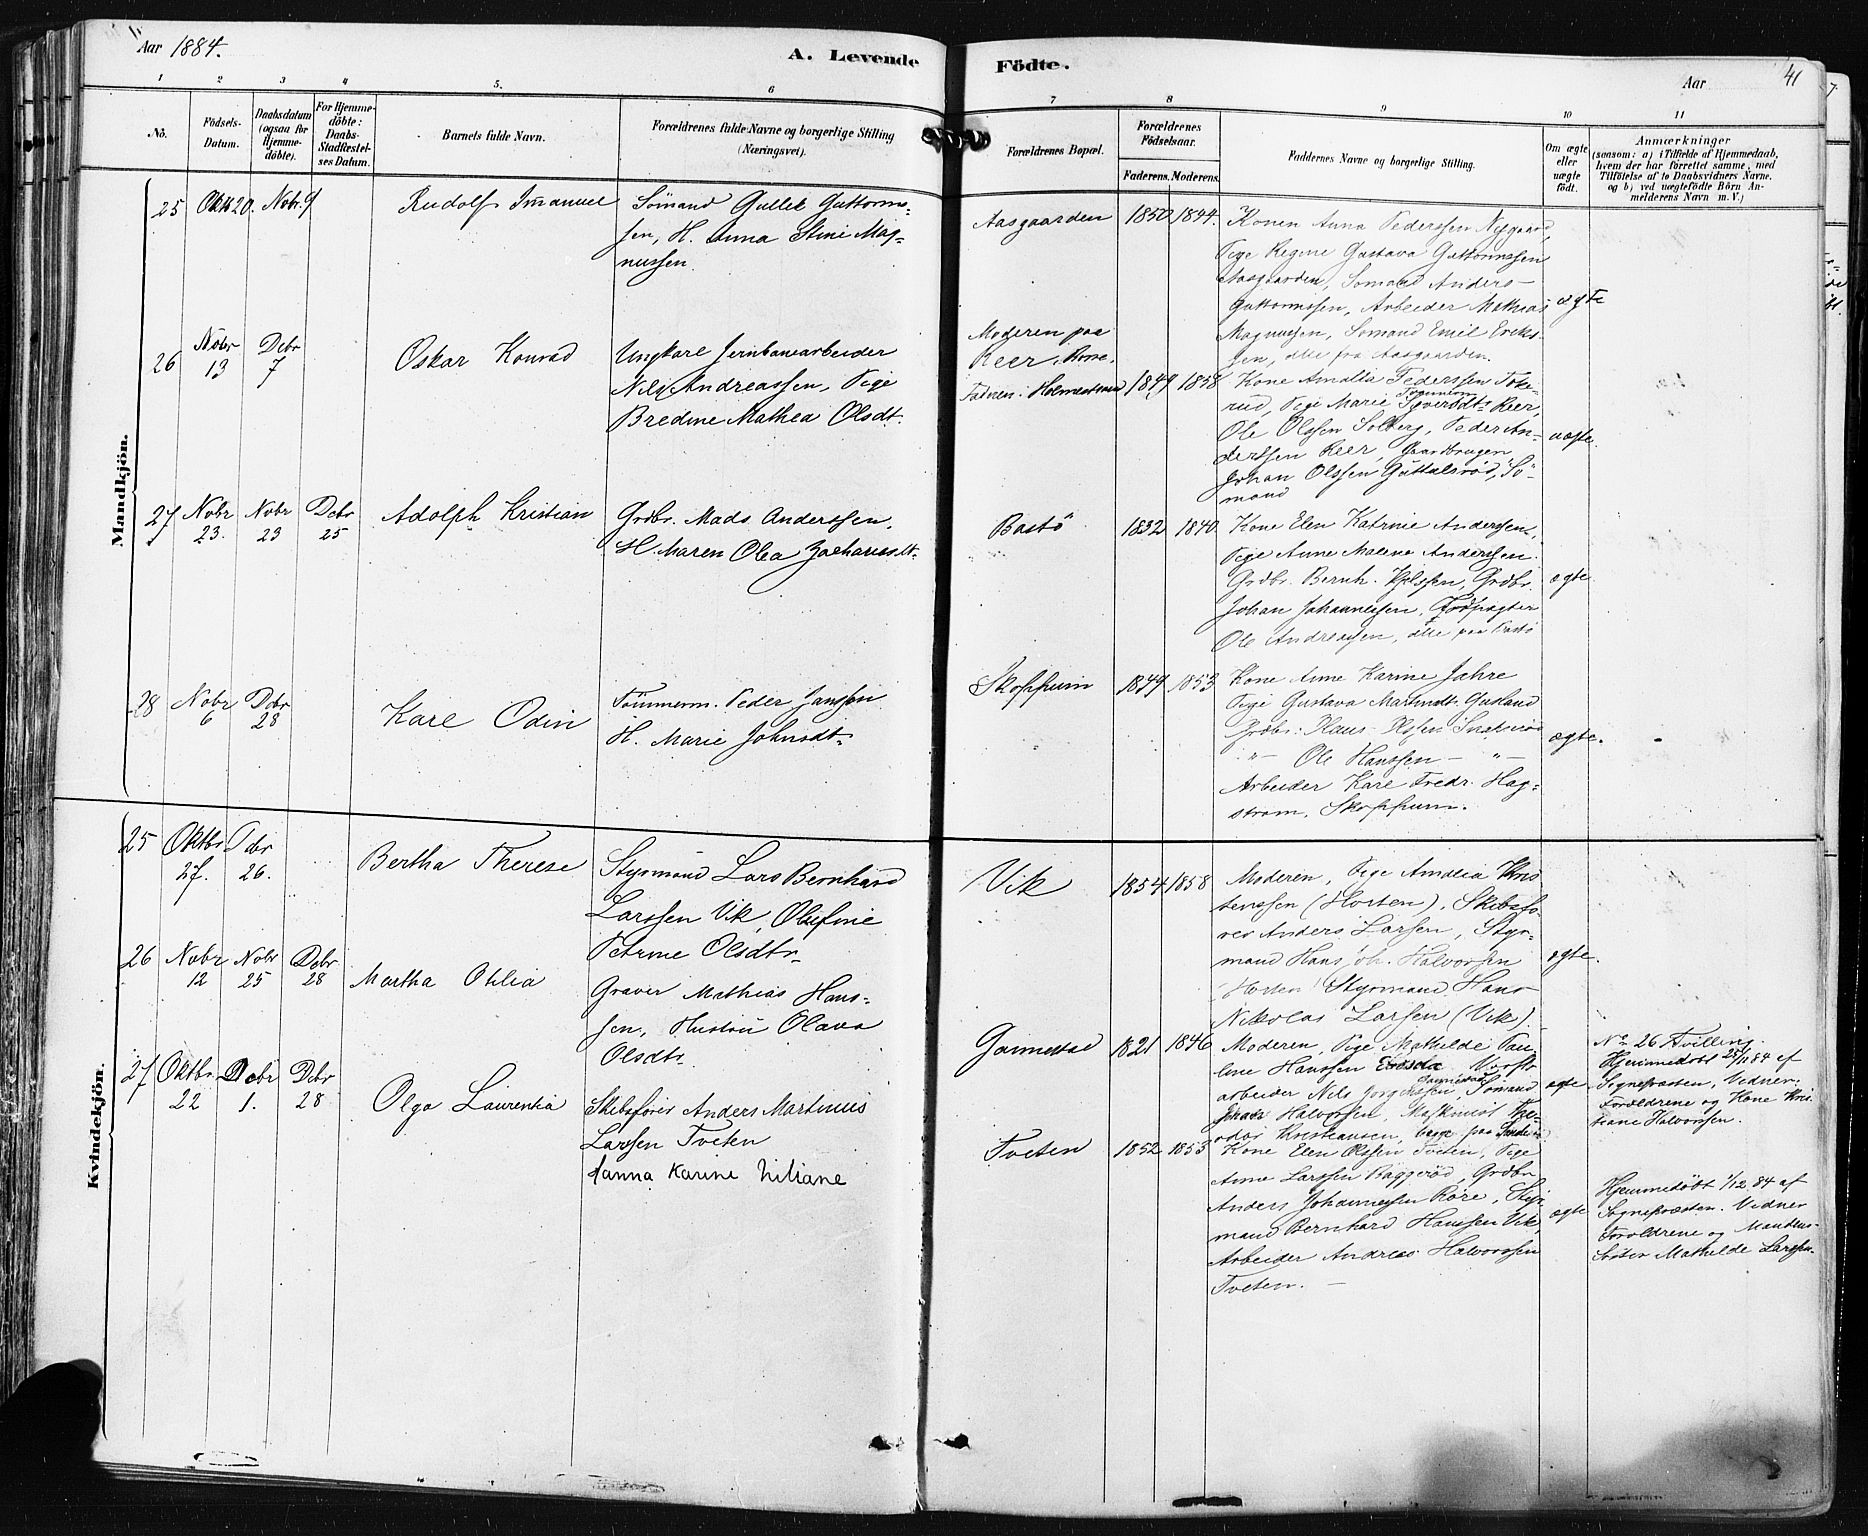 Aar 1884.
A. Levende
Födte.
Aar
41
1
2
3
4
5.
6
7
8
9
10
11
No.
Födsels-
Datum.
Daabsdatum
(ogsaa för
Hjemme-
döbte).
For Hjemme-
döbte:
Daabs-
Stadfæstel-
ses Datum.
Barnets fulde Navn.
Forældrenes fulde Navne og borgerlige Stilling
(Næringsvei).
Forældrenes Bopæl.
Forældrenes
Födselsaar.
Faderens. Moderens.
Faddernes Navne og borgerlige Stilling.
Om ægte
eller
uægte
födt.
Anmærkninger
(saasom: a) i Tilfælde af Hjemmedaab,
hvem der har forrettet samme, med
Tilföielse af to Daabsvidners Navne,
og b) ved uægtefödte Börn An-
melderens Navn m. V.)
Mandkjön.
25 Oktb 20. Nobr. 9
Rudolf Imanuel
Sömand Gullek Guttorms-
sen, H. Anna Stine Mag-
nussen.
Aasgaarden
1850 1844.
Konen Anna Pederssen Nygaard,
Pige Regine Gustava Guttormssen
Aasgaarden, Sömand Anders
Guttormssen, Arbeider Mathias
Magnussen, Sömand Emil Erik-
sen, alle fra Aasgaarden.
ægte
26 Nobr 13 Debr 7
Oskar Konrad
Ungkarl Jernbanearbeider
Nils Andreassen, Pige
Bredine Mathea Olsdt.
Moderen paa
Reer, Borre.
Faderen: Holmestrand
1849 1858
Kone Amalia Pederssen Foke-
rud, Pige Marie Syverdt. Reer,
Ole Olssen Solberg, Peder An-
derssen Reer, Gaardbruger
Johan Olssen Guttalsröd, Sö-
mand
uægte.
27 Nobr 23. Nobr 23 Debr 25
Adolph Kristian
Grdbr. Mads Anderssen,
H. Maren Olea Zachariasdt.
Bastö
1832 1840.
Kone Elen Katrine Anderssen,
Pige Anne Malene Anderssen
Grdbr. Bernh. Nilssen, Grdbr.
Johan Johannessen, Jordpagter
Ole Andreassen, alle paa Bastö
ægte
28 Nobr 6 Debr 28
Karl Odin
Tömmerm. Peder Janssen
H. Marie Johnsdt.
Skoppum
1849 1853
Kone Anne Karine Jahre
Pige Gustava Martinsdt.
Grdbr: Klaus Olssen
" — Ole Hanssen — " —
Arbeider Karl Fredr. Hag-
ström, Skoppum.
ægte.
Kvindekjön.
25 Oktbr 27. Debr 26.
Bertha Therese
Styrmand Lars Bernhard
Larssen Vik, Olufine
Petrine Olsdtr.
Vik
1854 1858
Moderen, Pige Amalia Kris
tenssen (Horten), Skibsfö-
rer Anders Larsen, Styr-
mand Hans Joh. Halvorsen
(Horten) Styrmand Hans
Nikolas Larsen (Vik).
ægte.
26 Nobr 12 Nobr 25 Debr 28
Martha Otilia
Graver Mathias Hans-
sen, Hustru Olava
Olsdtr.
Gannestad
1821 1846
Moderen, Pige Mathilde Pau-
line Hanssen, Verfts
arbeider Nils Jörgenssen, Sömand
Johan Halvorssen, Maskinist Theo-
dor Kristiansen, begge paa
ægte
No 26 Tvilling.
Hjemmedöbt 25/11 84 af
Sognepræsten, Vidner:
Forældrene og Kone Kris
tiane Halvorssen.
27 Oktbr. 22 Debr 1. Debr 28
Olga Laurentia
Skibsförer Anders Martinius
Larssen Tveten
Hanna Karine Liliane
Tveten
1852 1853
Kone Elen Olssen Tveten, Pige
Anne Larssen Baggeröd, Grdbr
Anders Johannessen Röre, Styr-
mand Bernhard Hanssen Vik,
Arbeider Andreas Halvorssen
Tveten. —
ægte
Hjemmedöbt 1/12 84 af
Sognepræsten. Vidner
Forældrene og Mandens
Söster Mathilde Larssen.